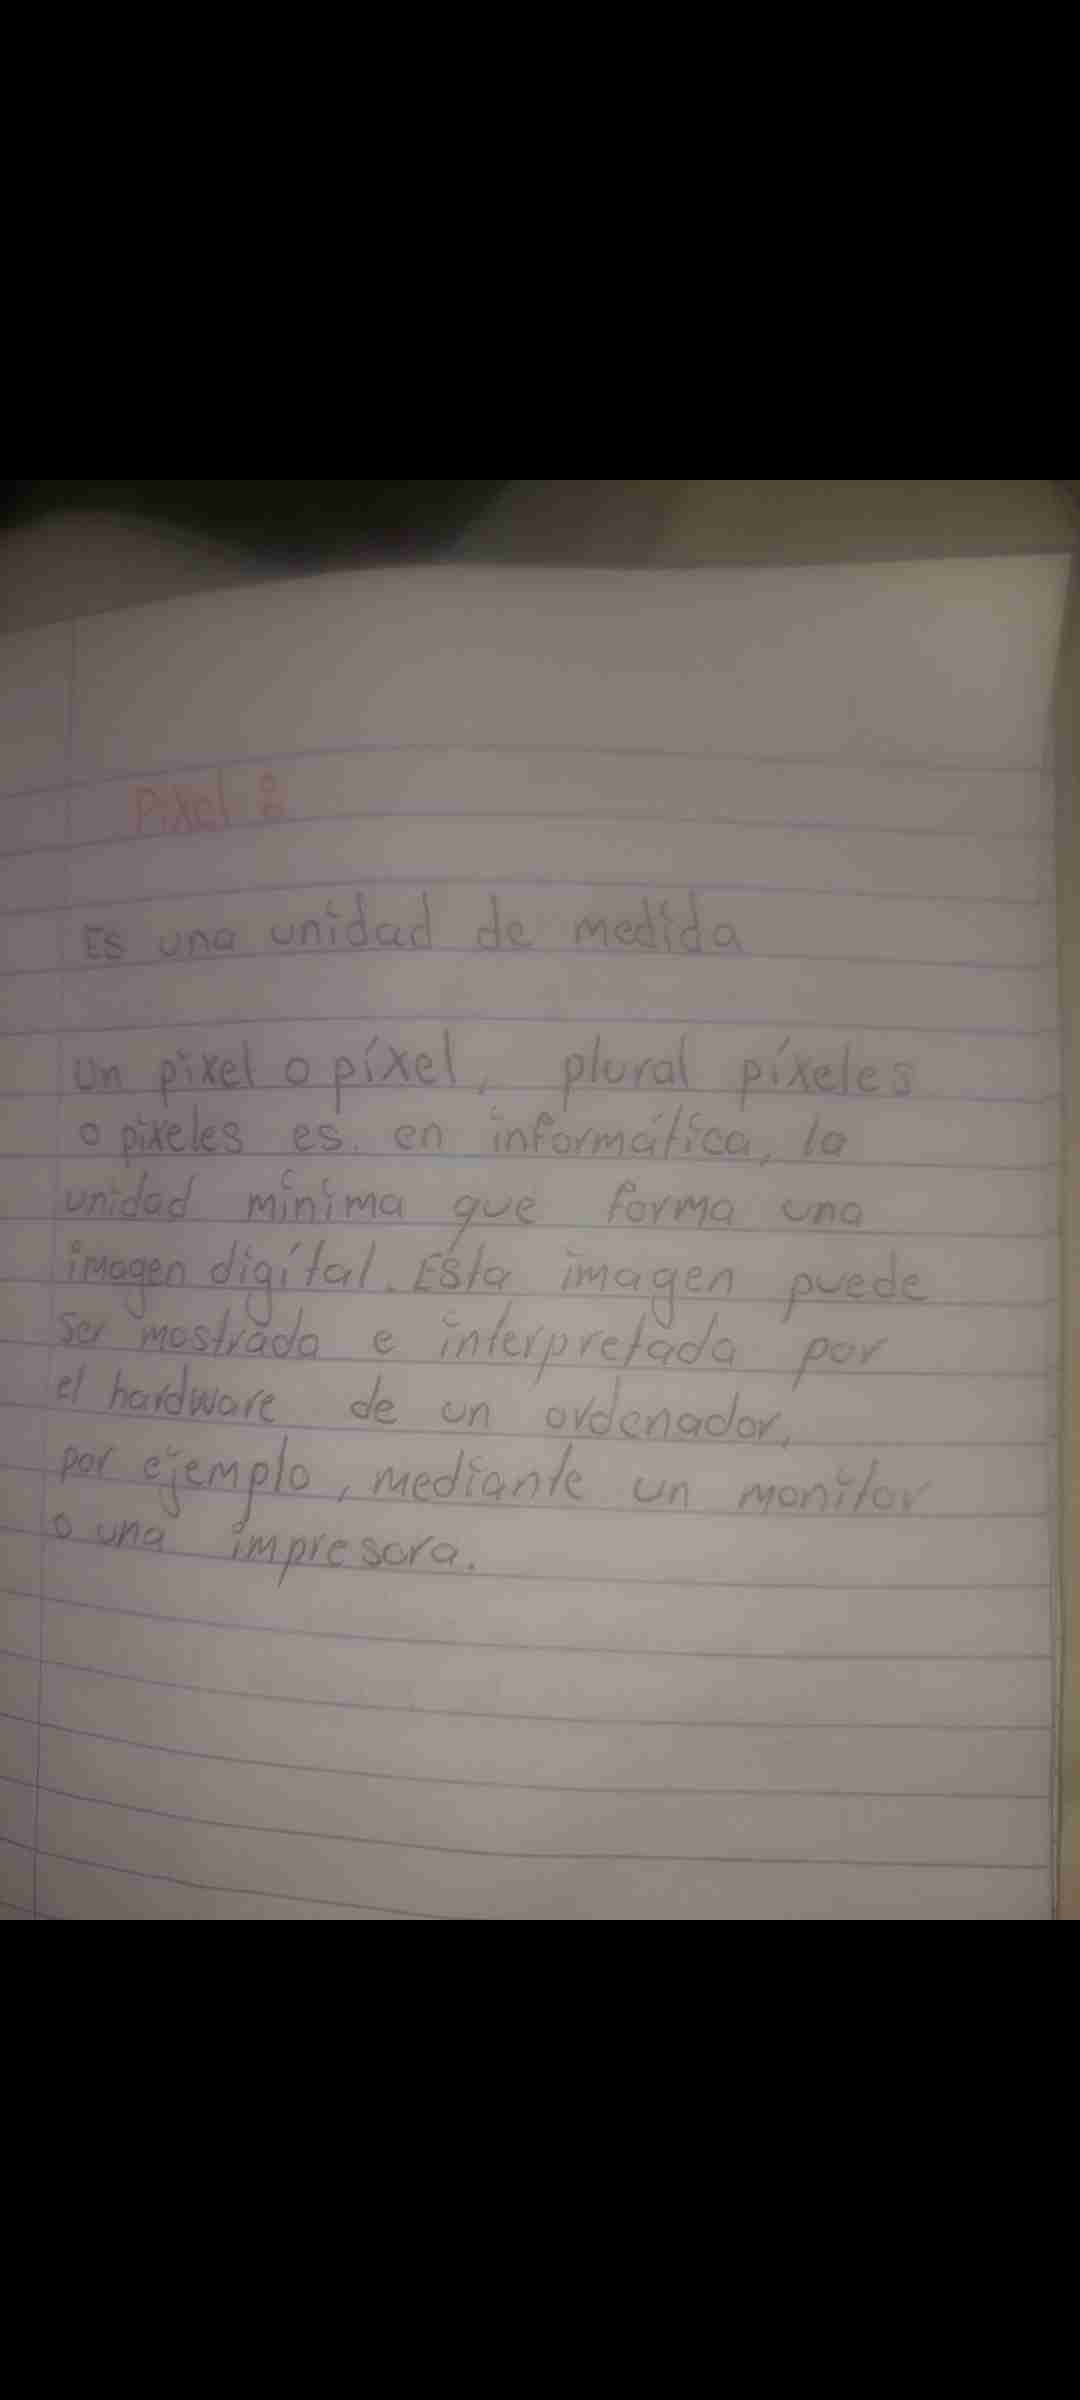 Pixel :
Es una unidad de medida
un pixel o píxel, plural píxeles
o pixeles es. en informática, la
unidad mínima que forma una
imagen digital. Esta imagen puede
ser mostrada e interpretada por
el hardware de un ordenador,
por ejemplo, mediante un monitor
o una impresora.